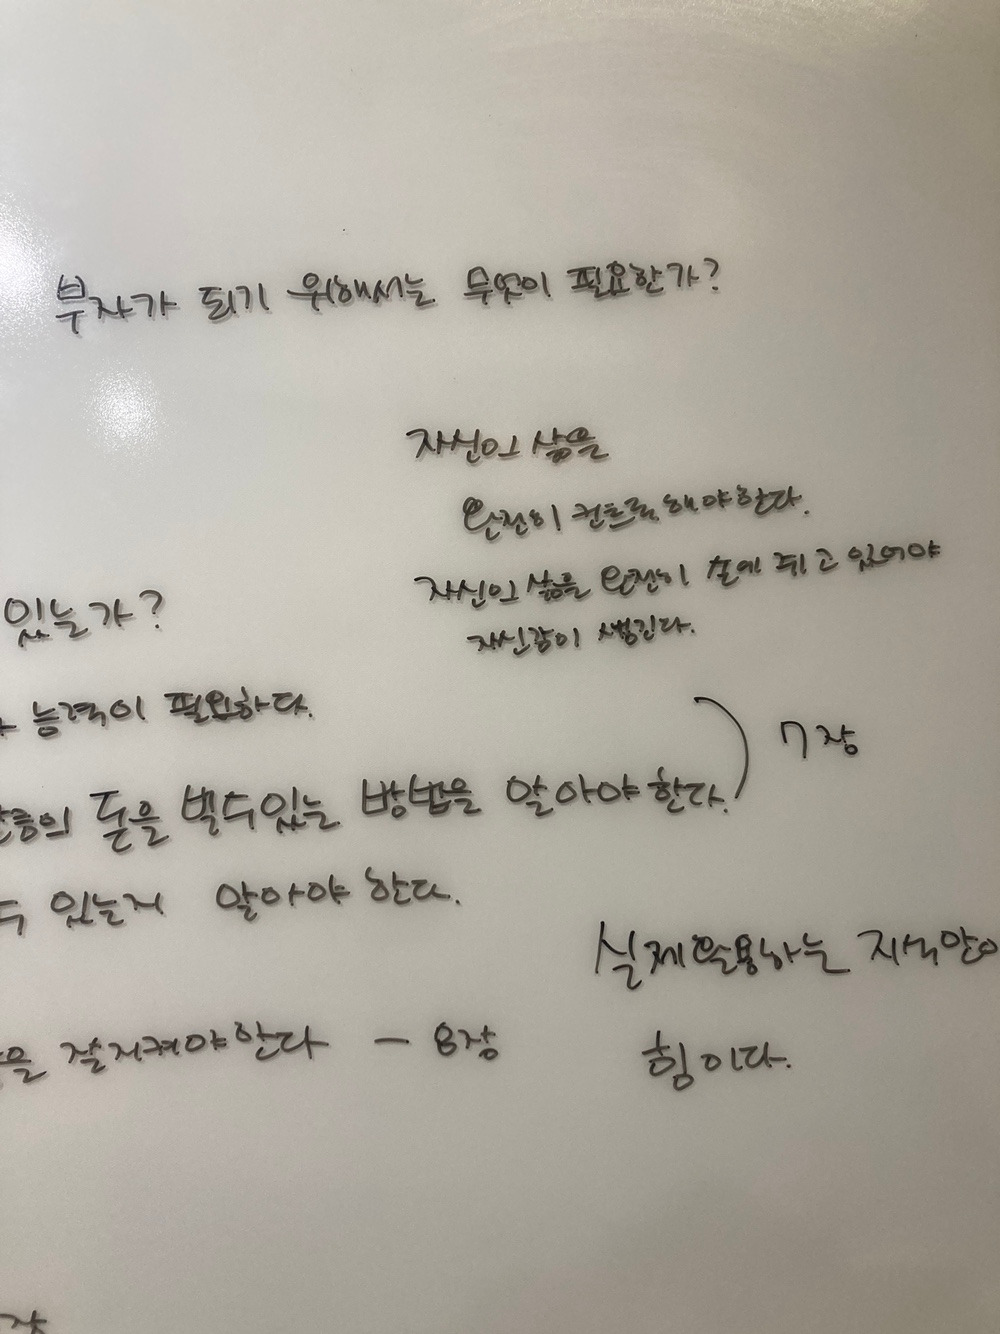 부자가 되기 위해서는 무엇이 필요한가?
자신의 삶을
완전히 컨트롤해야한다.
자신의 삶을 완전히 손에 쥐고 있어야
자신감이 생긴다.
있는가?
능력이 필요하다.
7장
돈을 벌수있는 방법을 알아야한다.
수 있는지 알아야 한다.
실제활용하는 지식만이
힘이다.
을 잘지켜야한다 - 8장
장